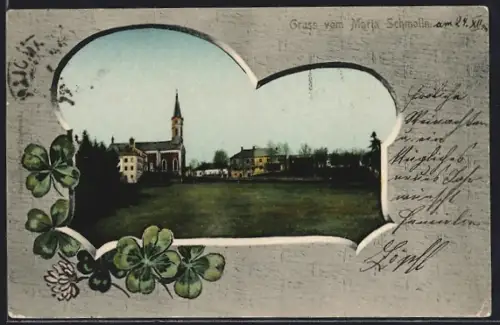 Gruss vom Maria Schmolln. am 24. XII.
Fröhliche
Weihnachten
u. ein
glückliches
neues Jahr
wünscht
Familie
Zöpfl